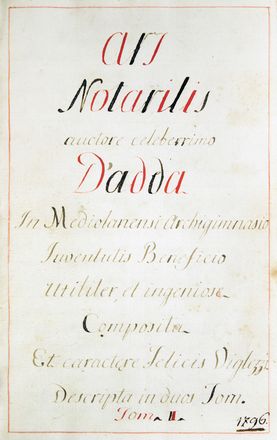 Ars
Notarilis
auctore celeberrimo
D'adda
In Mediolanensi Archigimnasio
Juventutis Beneficio
utiliter, et ingeniose
Composita
Et caractere Felicis
Descripta in duos Tom.
Tom. II.
1796